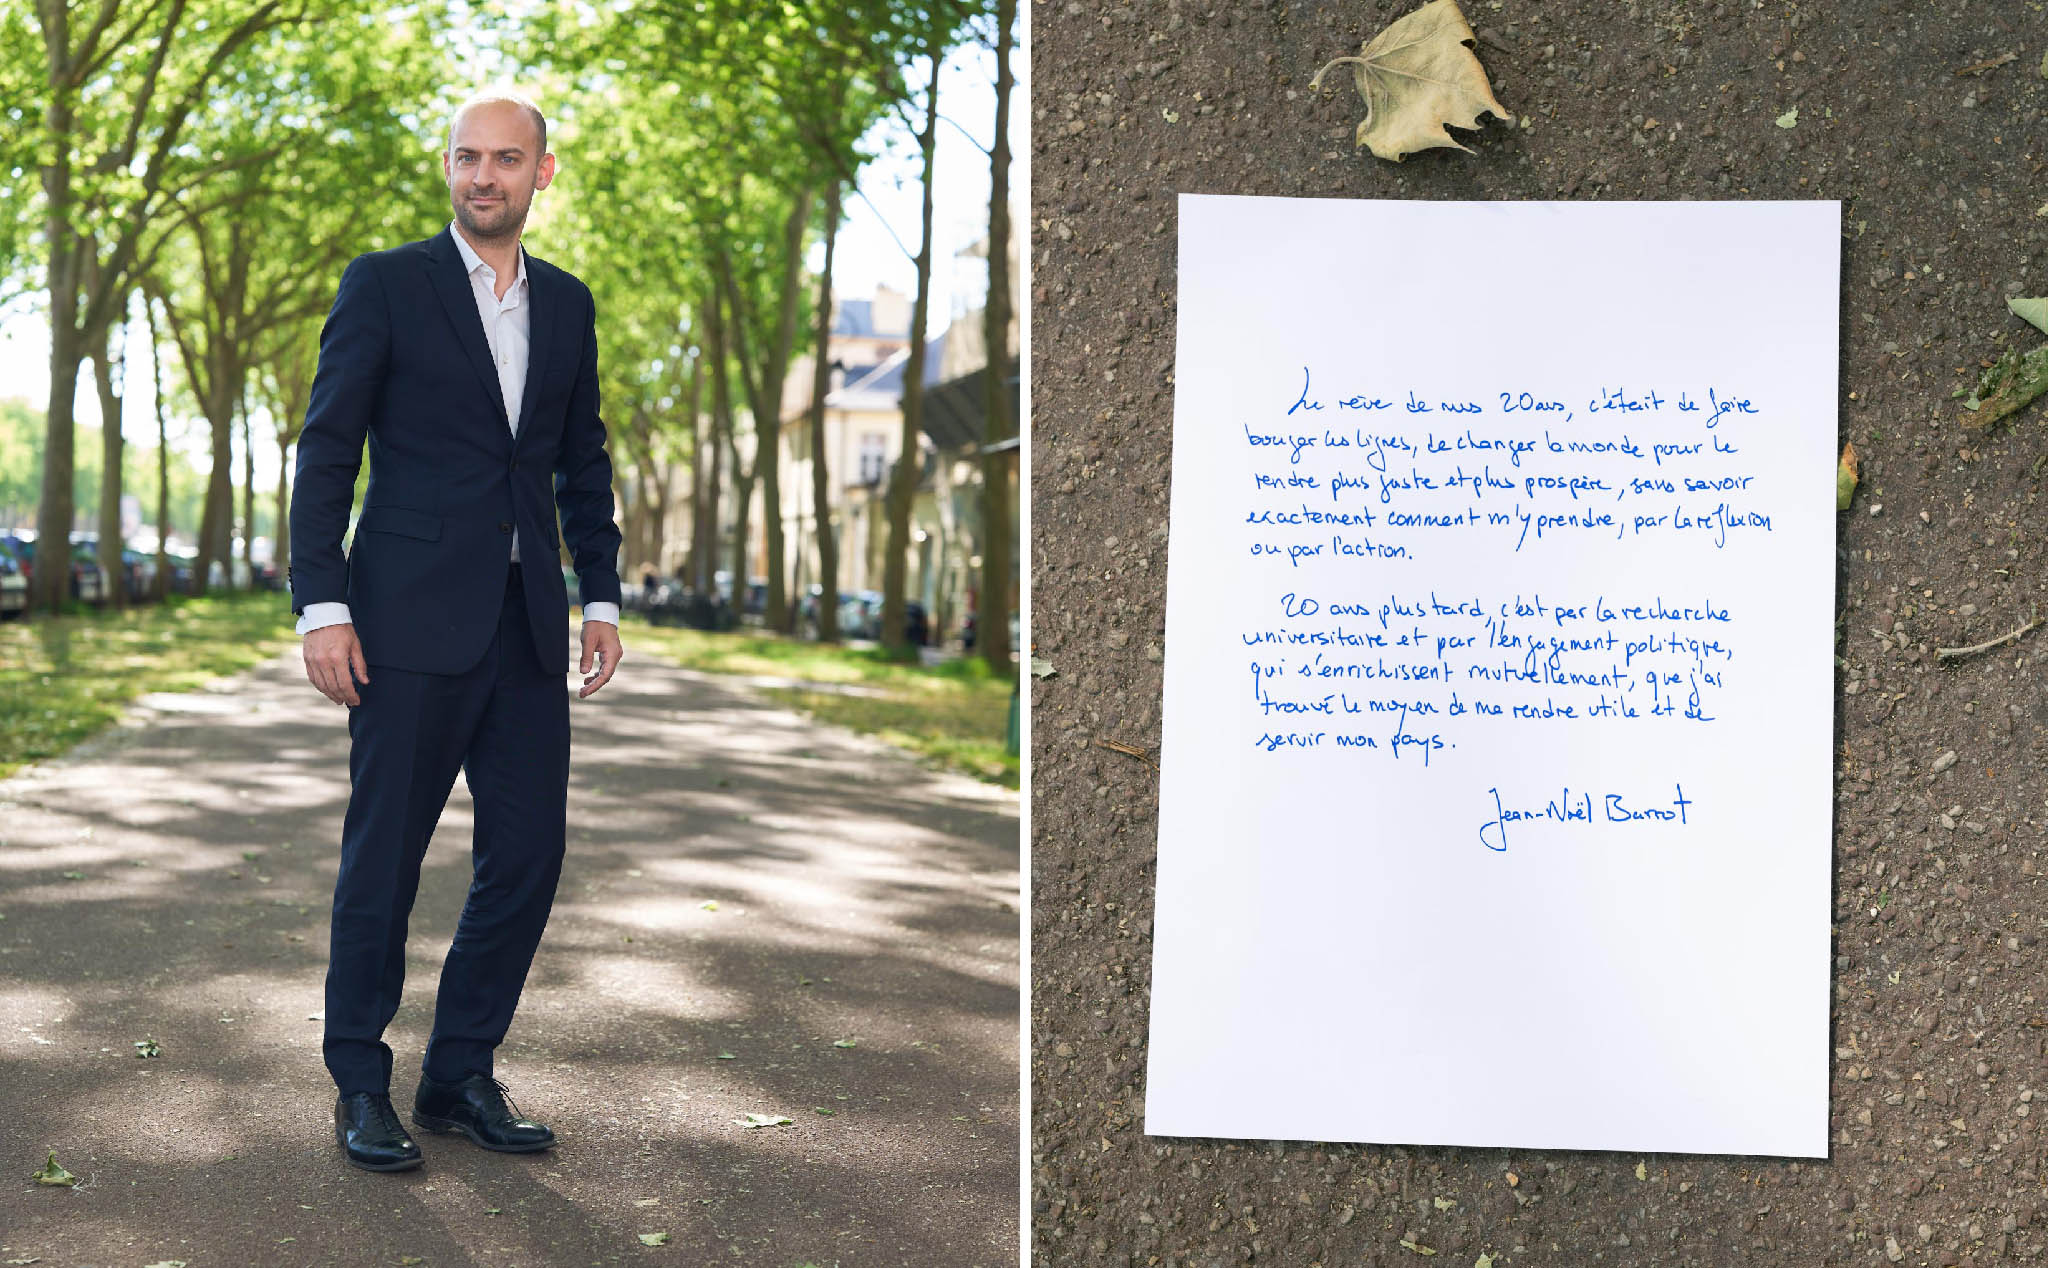 Le rêve de mes 20 ans, c'était de faire
bouger les lignes, de changer le monde pour le
rendre plus juste et plus prospère, sans savoir
exactement comment m'y prendre, par la réflexion
ou par l'action.
20 ans plus tard, c'est par la recherche
universitaire et par l'engagement politique,
qui s'enrichissent mutuellement, que j'ai
trouvé le moyen de me rendre utile et de
servir mon pays.
Jean-Noël Barrot